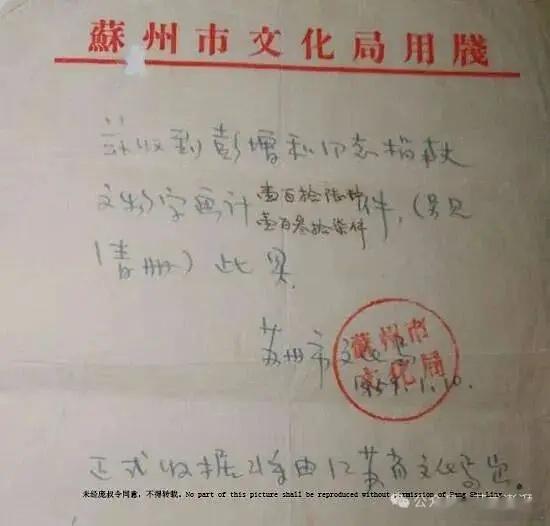 蘇州市文化局用牋
兹收到彭增和同志捐献
文物字画计 件,(另见
壹百拾陆件
壹百叁拾柒件
清册)此具.
苏州市文化局
蘇州市
文化局
1959.1.10.
正式收据将由江苏省文化局
未经庞叔令同意，不得转载。No part of this picture shall be reproduced without permission of Pang Shuling
公众号